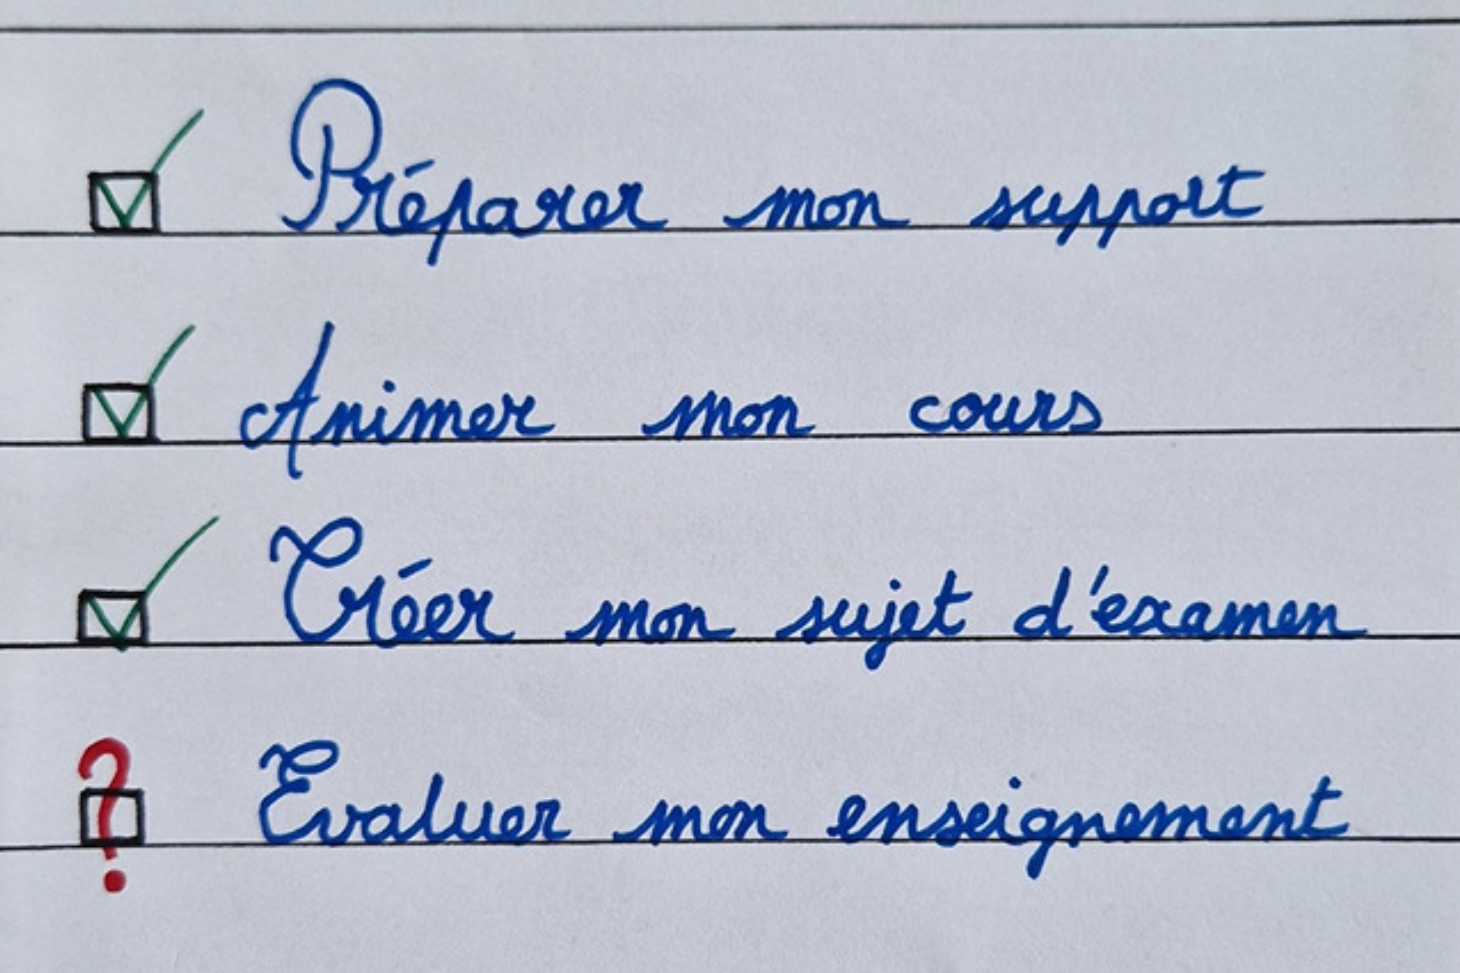 Préparer mon support
Animer mon cours
Créer mon sujet d'examen
? Evaluer mon enseignement